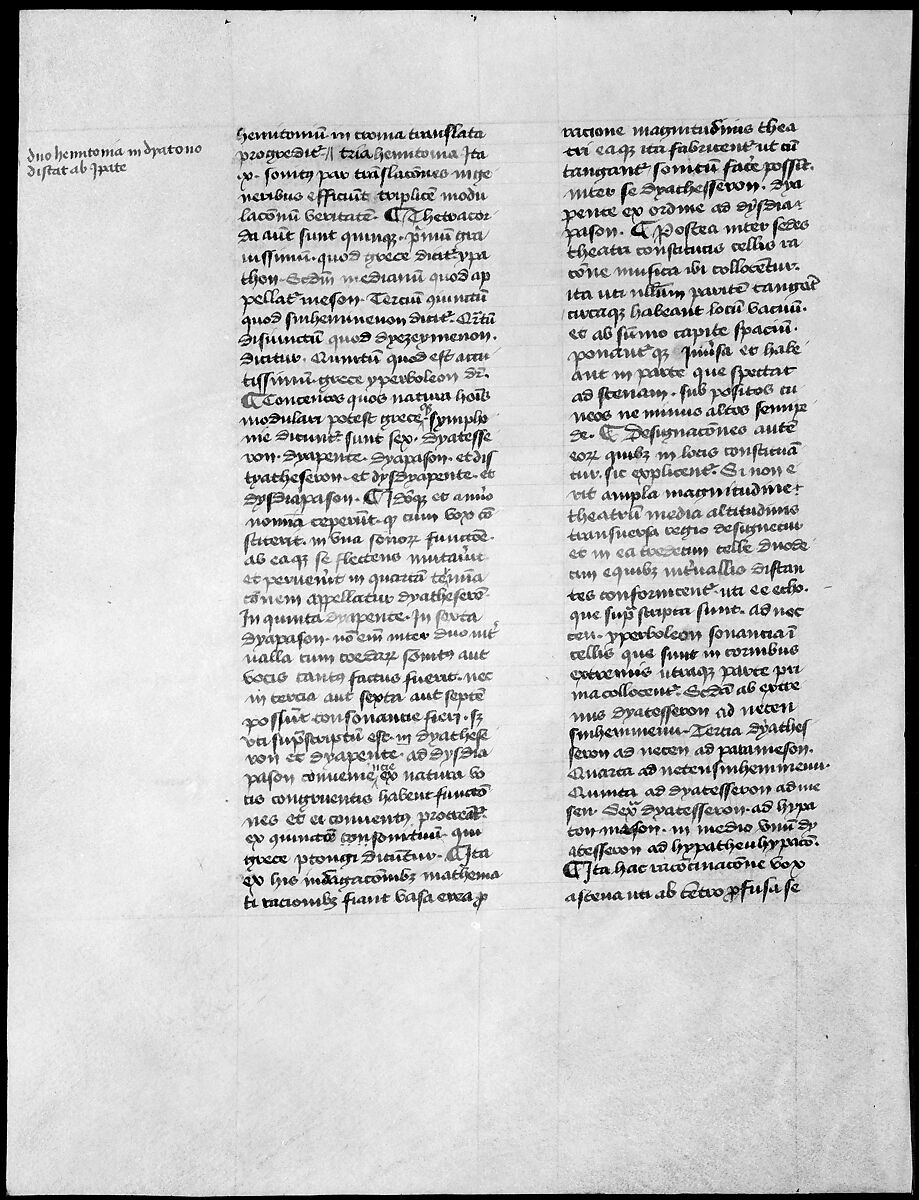 duo hemitonia in dyatono
distat ab ypate
hemitoniū in croma translata
progredit᷑ // tria hemitonia Ita
x. sonitꝰ par trāslacōnes in ge
neribus efficiūt triplicē modu
lacōnū veritatē. ¶ Thetracor
da aūt sunt quinqꝫ. p̄mū gra
uissimū. quod grece dicit᷑ ypa
thon. Scdm̄ medianū quod ap
pellat᷑ meson. Terciū qūictū
quod sinhemmenon dicit᷑. Qr̄tū
disiunctū quod dyezeymenon.
dicitur. Quintū quod est acu
tissimū grece yperboleon dr̄.
¶ Concentos quos natura hoīs
modulari potest grece qꝫ sympho
nie dicunt᷑ sunt sex. dyatesse
ron. dyapente. dyapason. et dis
tyatheseron. et dysdyapente. et
dysdiapason. ¶ Idōqꝫ et a nūo
nomīa ceperūt. qꝫ cum vox cō
stiterit. in vna sonoꝝ functōe.
ab eaqꝫ se flectens mutaūit
et peruenīt in quartā t̄mīa
cōnem appellatur dyatheserō.
In quinta dyapente. In sexta
dyapason. nō em̄ inter duo int᷑
ualla cum coedarꝝ sonitꝰ aut
vocis cantꝰ factus fuerit. nec
in tercia aut sexta aut septē
possūt consonancie fieri. sꝫ
vti sup̄scriptū est. in dyathese
ron et dyapente. ad dysdia
pason conuenie ncie ex natura vo
cis congruentis habent functō
nes et ei conuentꝰ procreāt᷑.
ex quinctōe consonituū. qui
grece ptongi dicūntur. ¶ Ita
ex his indagacōnibꝫ mathema
ti racionibꝫ fiant vasa erea ꝓ
racione magnitudinis thea
tri eaqꝫ ita fabricent᷑ ut cū
tangant᷑ sonitū facē possit.
inter se dyathesseron. dya
pente ex ordine ad dysdia
pason. ¶ Postea inter sedes
theatri constitutis cellis ra
cōne musica ibi collocent᷑.
ita uti nullum parietē tangāt
circaqꝫ habeant locū vacuū.
et ab sūmo capite spaciū.
ponant᷑ qꝫ inūsa et habe
ant in parte que spectat
ad scenam. sub positos cu
neos ne minus altos semipe
de. ¶ Designacōnes autē
eoꝝ quibꝫ in locis constituā
tur. sic explicent᷑. Si non e
rit ampla magnitudine
theatrū media altitudinis
transuersa regio designetur
et in ea tredecim celle duode
cim equibꝫ int᷑uallis distan
tes confornicent᷑. uti ee echo.
que sup̄ scripta sunt. ad nec
ten. yperboleon sonancia ī
cellis que sunt in cornibus
extremis utraqꝫ parte pri
ma collocent᷑. Scdā ab extre
mis dyatesseron ad neten
sinhemmenū. Tercia dyathes
seron ad neten ad parameson.
Quarta ad netensinhemmenū.
Quinta ad dyatesseron ad me
sen. Sexᵃ dyatesseron. ad hypa
ton meson. in medio vnū dy
atesseron ad hypathenhypatō.
¶ Ita hac racōcinacōne vox
a scena uti ab cētro ꝓfusa se